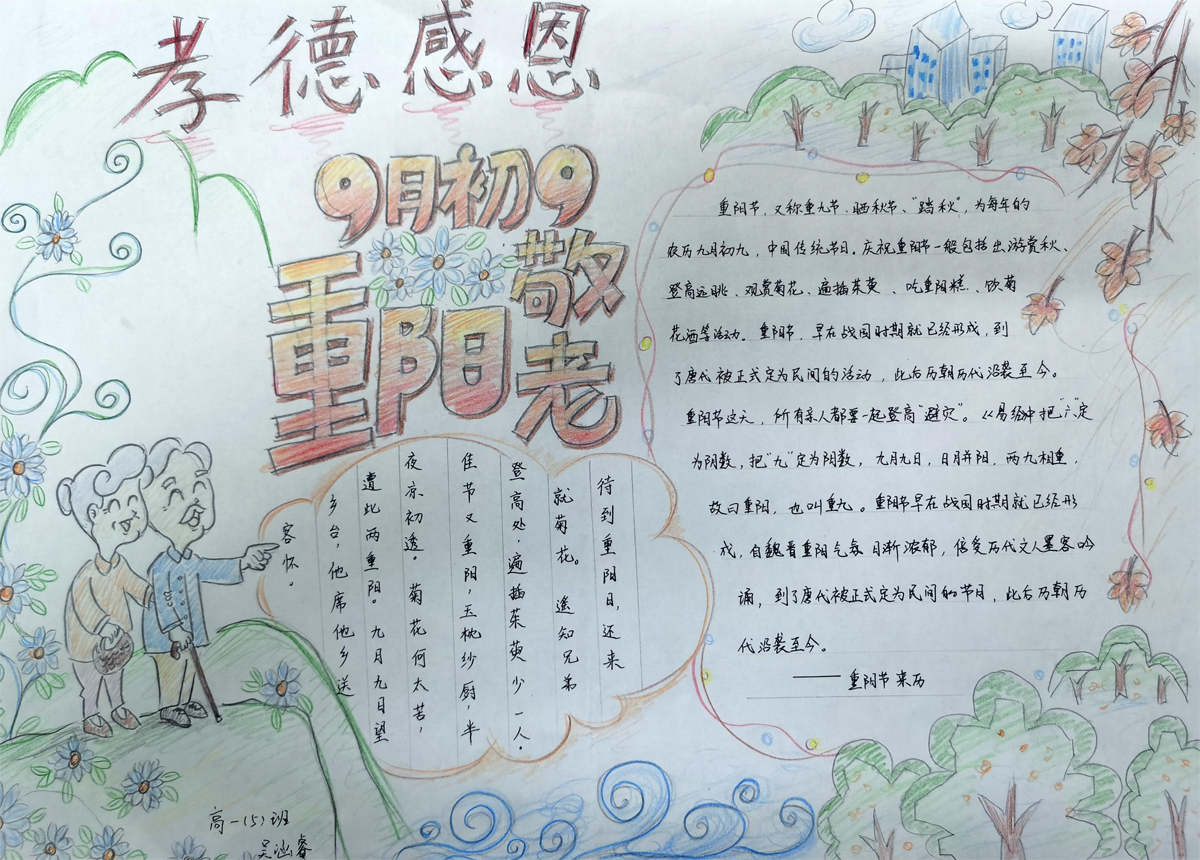 孝德感恩
9月初9
重阳敬老
重阳节,又称重九节、晒秋节、“踏秋”,为每年的
农历九月初九,中国传统节日。庆祝重阳节一般包括出游赏秋、
登高远眺、观赏菊花、遍插茱萸、吃重阳糕、饮菊
花酒等活动。重阳节,早在战国时期就已经形成,到
了唐代被正式定为民间的活动,此后历朝历代沿袭至今。
重阳节这天,所有亲人都要一起登高“避灾”。《易经》中把“六”定
为阴数,把“九”定为阳数,九月九日,日月并阳,两九相重,
故曰重阳,也叫重九。重阳节早在战国时期就已经形
成,自魏晋重阳气氛日渐浓郁,倍受历代文人墨客吟
诵,到了唐代被正式定为民间的节日,此后历朝历
代沿袭至今。
——重阳节来历
待到重阳日,还来
就菊花。遥知兄弟
登高处,遍插茱萸少一人。
佳节又重阳,玉枕纱厨,半
夜凉初透。菊花何太苦,
遭此两重阳。九月九日望
乡台,他席他乡送
客怀。
高一(5)班
吴涵睿